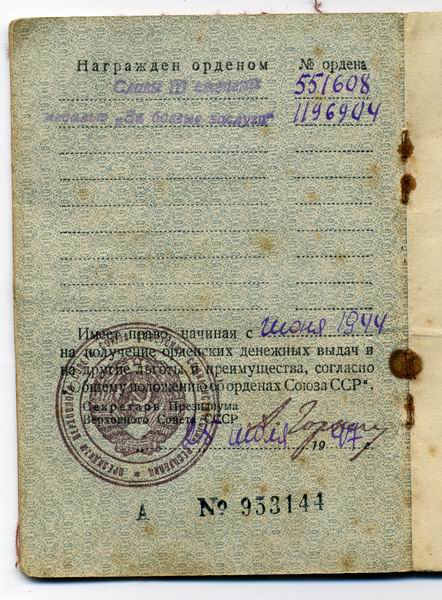 Награжден орденом № ордена
Славы III степени 551608
медалью „За боевые заслуги" 1196904
Имеет право, начиная с июня 1944
на получение орденских денежных выдач и
на другие льготы и преимущества, согласно
„Общему положению об орденах Союза ССР".
Секретарь Президиума
Верховного Совета СССР
25 июля 1947 г.
А № 953144